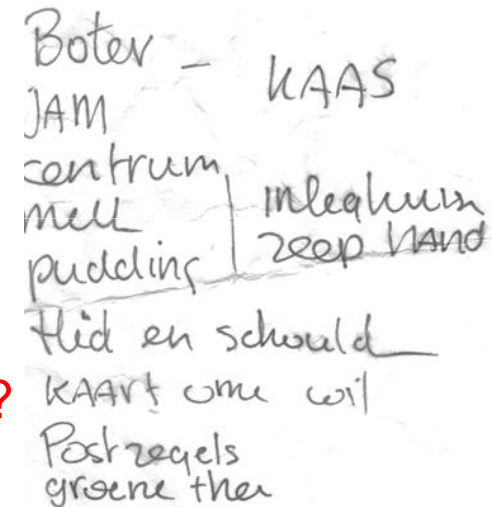 Boter - KAAS
JAM
centrum
melk
pudding
inlegkruis
zeep HAND
Hid en schould
? KAART ome wil
Postzegels
groene thee